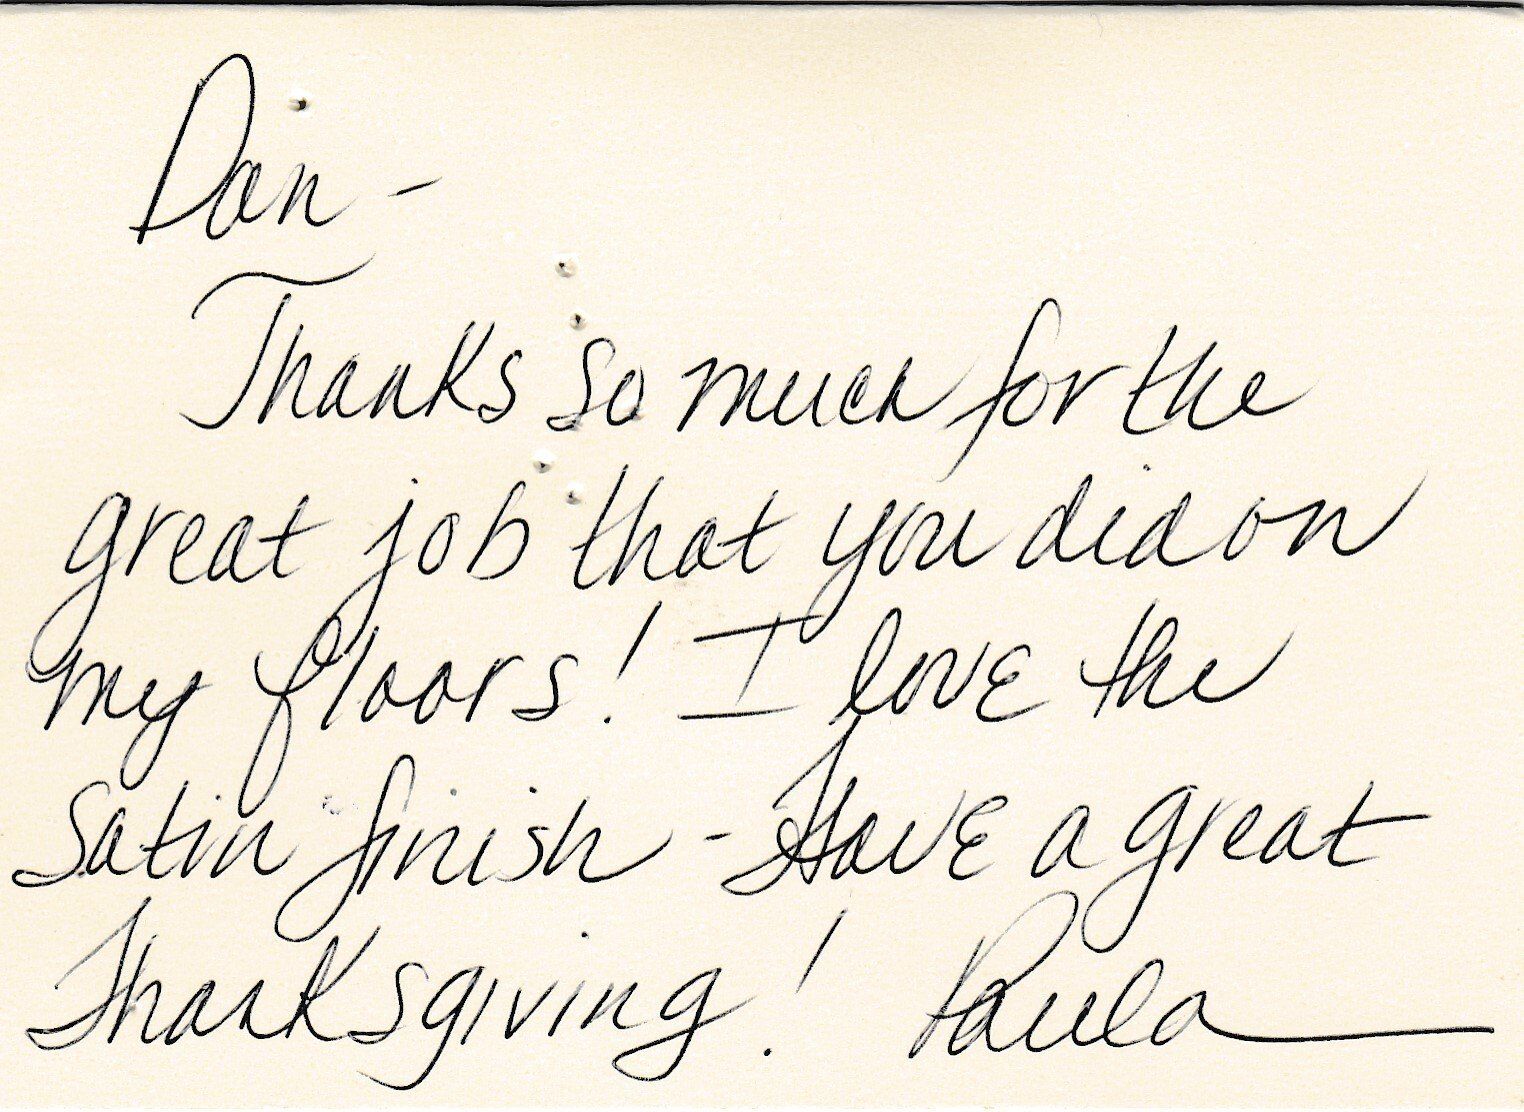 Dan -
Thanks so much for the
great job that you did on
my floors! I love the
satin finish - Have a great
Thanksgiving! Paula